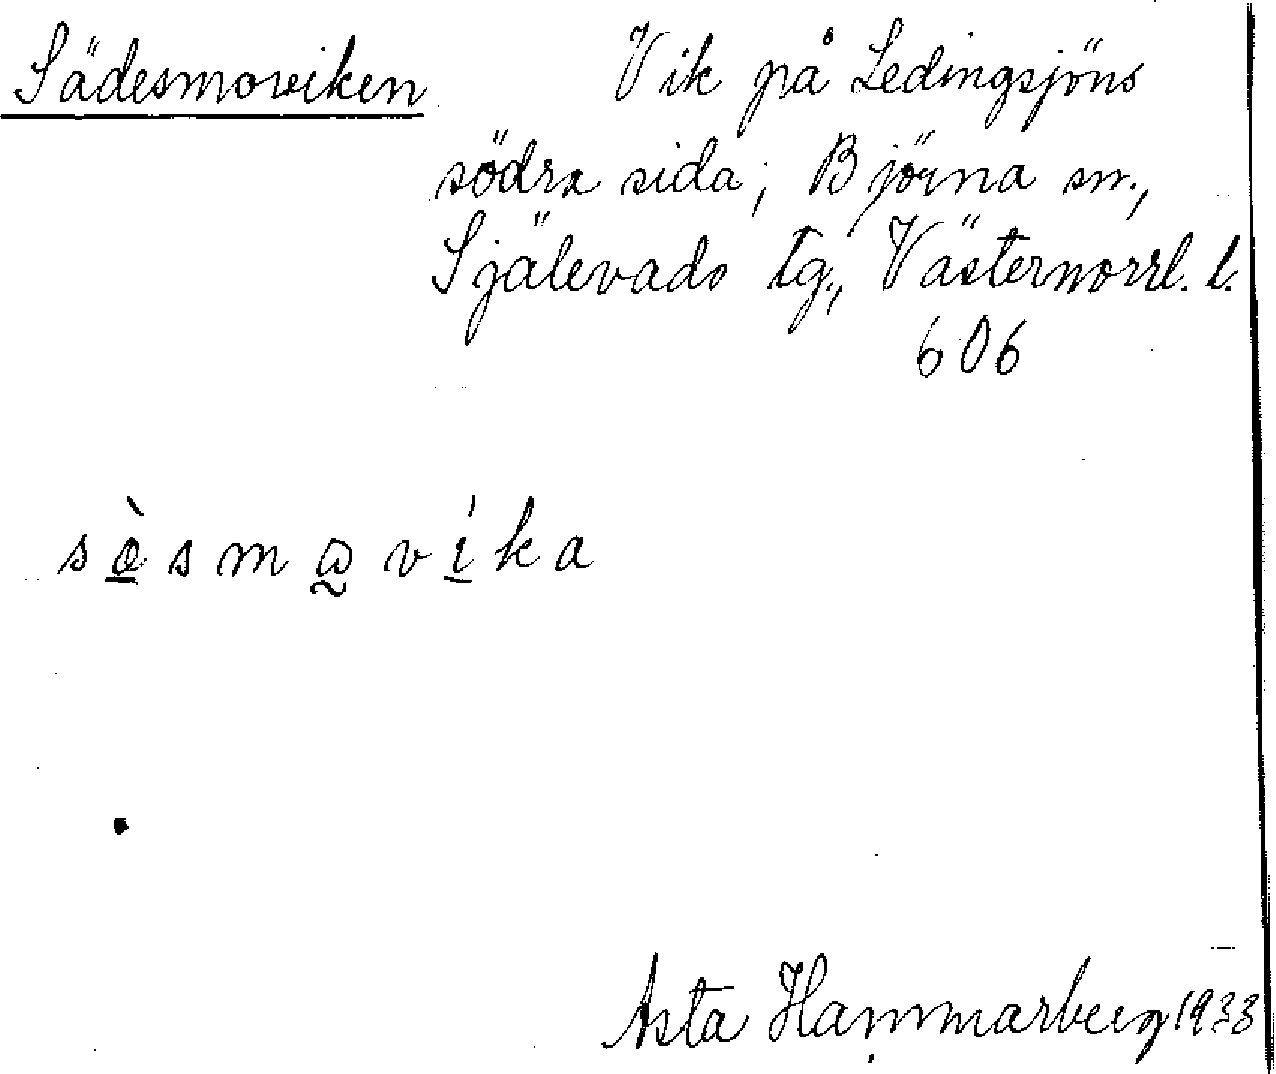 Sädesmoviken Vik på Ledingsjöns
södra sida; Björna sn.,
Själevads tg., Västernorrl. l.
606
Asta Hammarberg 1933